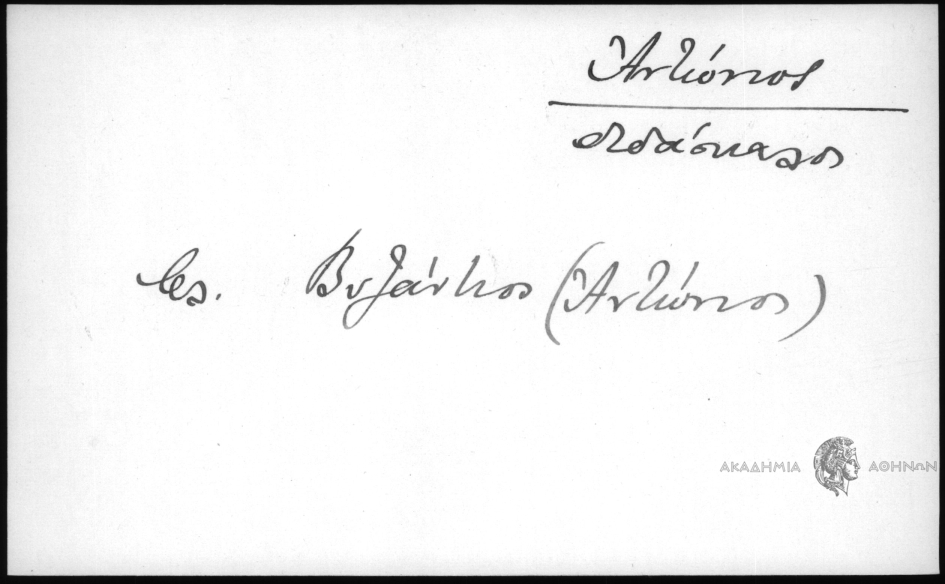 Ἀντώνιος
διδάσκαλος
βλ. Βυζάντιος (Ἀντώνιος)
ΑΚΑΔΗΜΙΑ ΑΘΗΝΩΝ